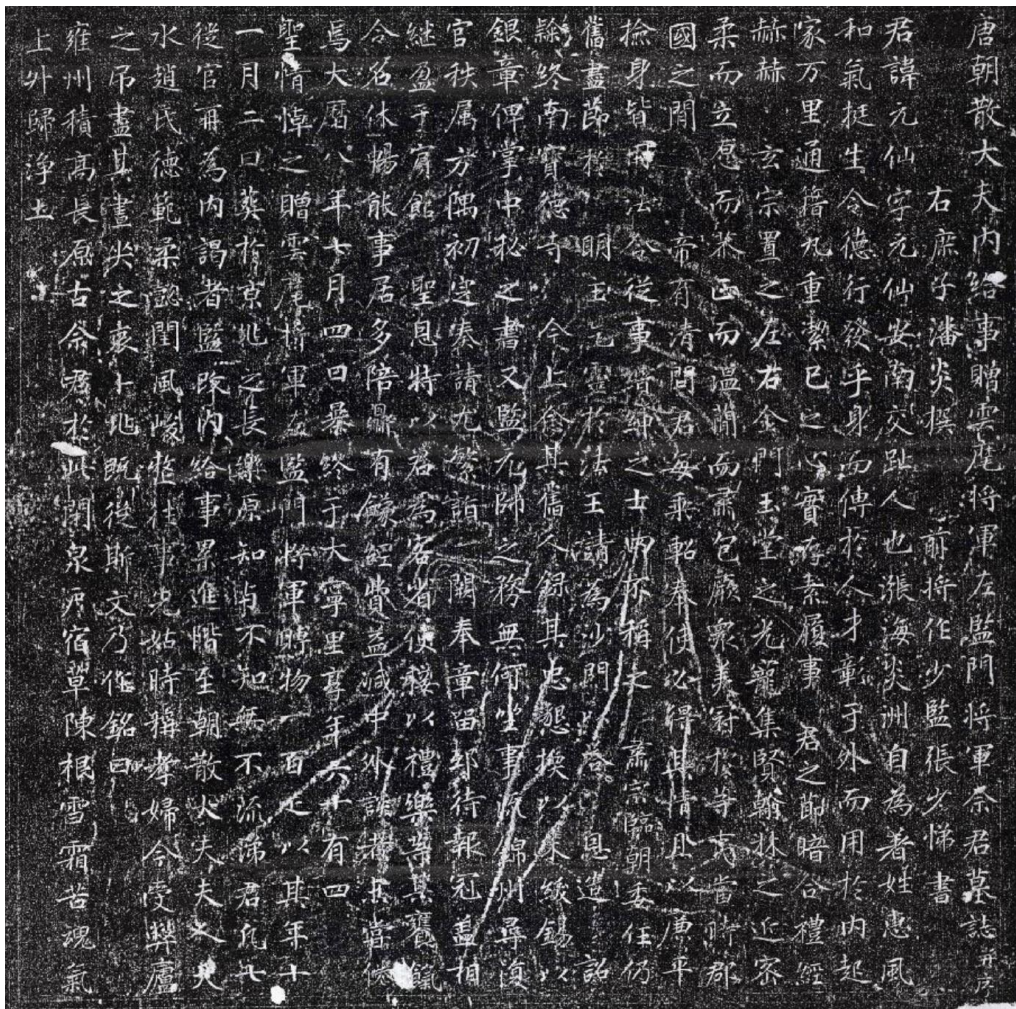 唐朝散大夫內給事贈雲麾将軍左監門将軍奈君墓誌并序
右庶子潘炎撰 前将作少監張少悌書
君諱元仙字元仙安南交趾人也漲海炎洲自為著姓惠風
和氣挺生令德行發乎身而傳於人才彰于外而用於內起
家万里通籍九重潔己之心實存素履事君之節暗合禮經
赫赫玄宗置之左右金門玉堂之光寵集賢翰林之近密
柔而立愿而恭正而溫簡而肅包厥衆美冠於等夷當時郡
國之間帝有清問君每乘軺奉使必得其情且以廉平
撿身皆用法令從事縉紳之士炳亦稱大肅宗臨朝委任仍
舊盡節於明主乞靈於法王請為沙門以荅恩遣詔
隸終南寶德寺今上念其舊人録其忠懇換以朱紱錫以
銀章俾掌中秘之書又監元帥之務無何坐事於錦州尋復
官秩属方隅初定奏請尤繁詣闕奉章留邸待報冠盖相
継盈于賓館聖恩特以君為客省使禮以禮樂等其饔餼
令名休暢能事居多陪鼎有餘經費益減中外談者無當倦
焉大曆八年七月四日暴終于大寧里享年六十有四
聖情悼之贈雲麾将軍左監門将軍賻物一百疋以其年十
一月二日葬於京兆之長樂原知与不知無不流涕君凡七
從官再為內謁者監除內給事累進階至朝散大夫夫人天
水趙氏德範柔認閨風峻整往事先姑時稱孝婦今受弊廬
之吊盡其晝哭之哀卜地既從斯文乃作銘曰
雍州積高長原古奈君於此閇泉戶宿草陳根雪霜苦魂氣
上升歸淨土